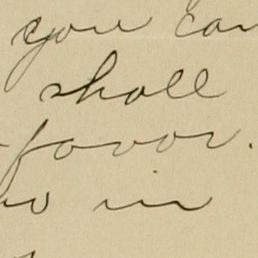 you can
shall
favor.
in